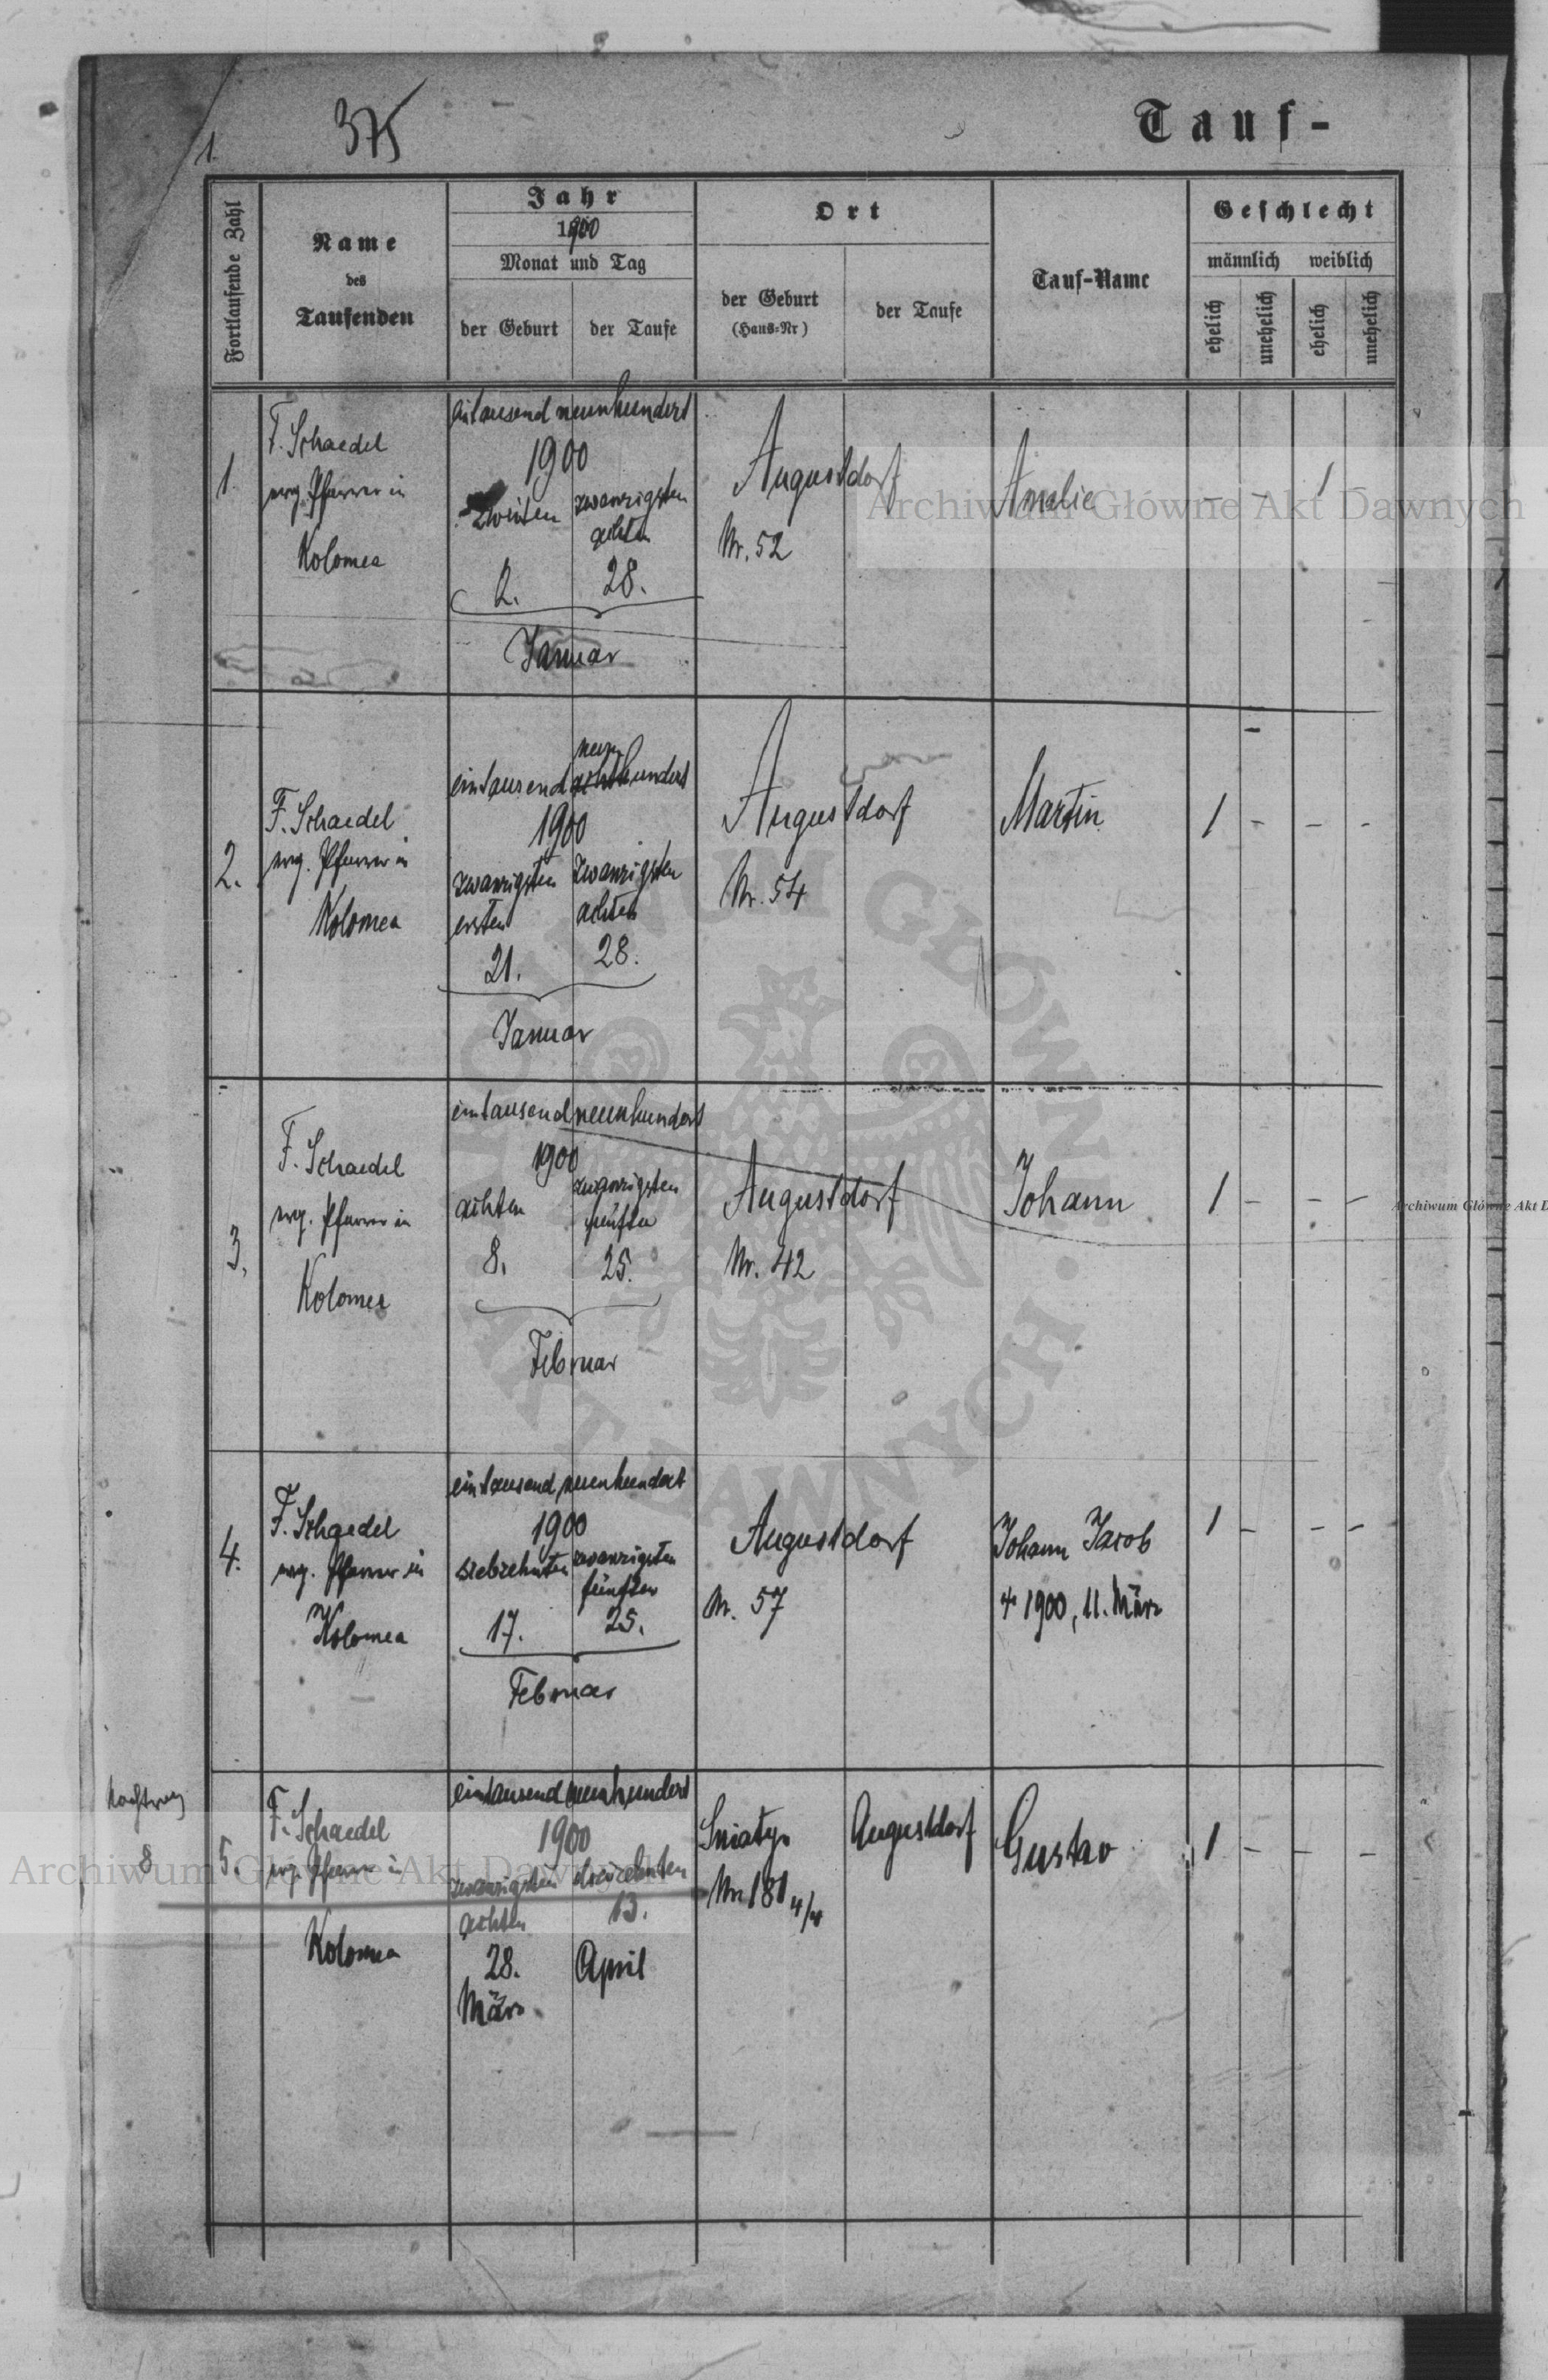 1.
375
Tauf-
Fortlaufende Zahl
Name
des
Taufenden
Jahr
1900
Monat und Tag
der Geburt
der Taufe
Ort
der Geburt
(Haus-Nr)
der Taufe
Tauf-Name
Geschlecht
männlich weiblich
ehelich
unehelich
ehelich
unehelich
1.
F. Schaedel
evg. Pfarrer in
Kolomea
eintausend neunhundert
1900
zweiten
2.
zwanzigsten
achten
28.
Januar
Augustdorf
Nr. 52
Amalie
- - 1 -
2.
F. Schaedel
evg. Pfarrer in
Kolomea
neun
eintausend achthundert
1900
zwanzigsten
ersten
21.
zwanzigsten
achten
28.
Januar
Augustdorf
Nr. 54
Martin
1 - - -
3.
F. Schaedel
evg. Pfarrer in
Kolomea
eintausend neunhundert
1900
achten
8.
zwanzigsten
fünften
25.
Februar
Augustdorf
Nr. 42
Johann
1 - - -
4.
F. Schaedel
evg. Pfarrer in
Kolomea
eintausend neunhundert
1900
siebzehnten
17.
zwanzigsten
fünften
25.
Februar
Augustdorf
Nr. 57
Johann Jacob
† 1900, 11. März
1 - - -
Nachtrag
8
5.
F. Schaedel
evg. Pfarrer in
Kolomea
eintausend neunhundert
1900
zwanzigsten
achten
28.
März
dreizehnten
13.
April
Sniatyn
Nr 181 4/4
Augustdorf
Gustav
1 - - -
Archiwum Główne Akt Dawnych
ARCHIWUM GŁÓWNE AKT DAWNYCH
Archiwum Główne Akt D
Archiwum Główne Akt Dawnych